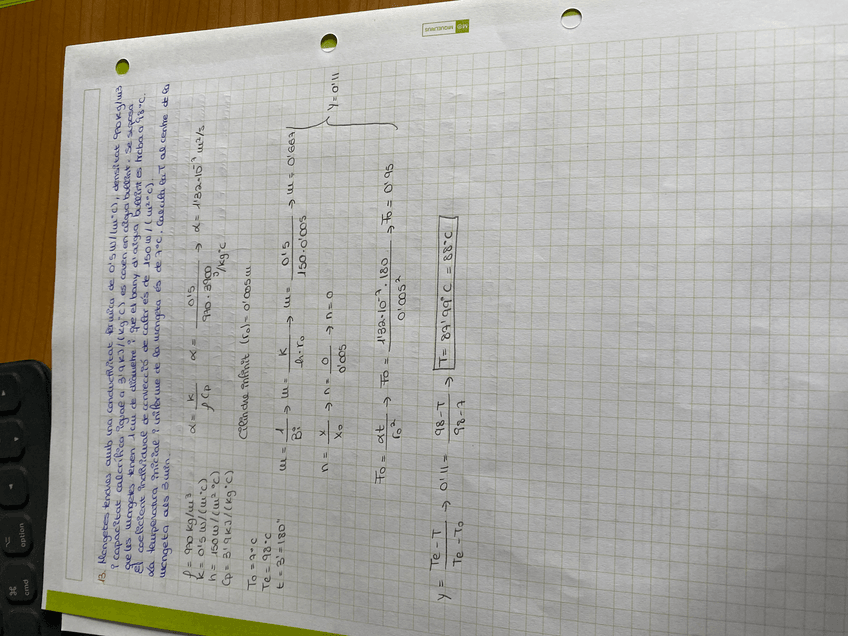 13. Mongetes tendres amb una conductivitat tèrmica de 0'5 W/(m·°C), densitat 970 kg/m3
i capacitat calorífica igual a 3'9 kJ/(kg·°C) es couen en aigua bullint. Se suposa
que les mongetes tenen 1 cm de diàmetre i que el bany d'aigua bullint es troba a 98°C.
El coeficient individual de convecció de calor és de 150 W/(m²·°C).
La temperatura inicial i uniforme de la mongeta és de 7°C. Calcula la T al centre de la
mongeta als 3 min.
ρ = 970 kg/m³
k = 0'5 W/(m·°C)
h = 150 W/(m²·°C)
Cp = 3'9 kJ/(kg·°C)
T0 = 7°C
Te = 98°C
t = 3' = 180"
α = k / ρ Cp   α = 0'5 / 970·3900 J/kg°C → α = 1'32·10⁻⁷ m²/s
Cilindre infinit (r0) = 0'005m
m = 1 / Bi → m = k / h·r0 → m = 0'5 / 150·0'005 → m = 0'667
n = x / x0 → n = 0 / 0'005 → n = 0
F0 = αt / r0² → F0 = 1'32·10⁻⁷·180 / 0'005² → F0 = 0'95
y = 0'11
y = Te - T / Te - T0 → 0'11 = 98 - T / 98 - 7 → T = 87'99°C = 88°C
MIQUELRIUS
cmd
option